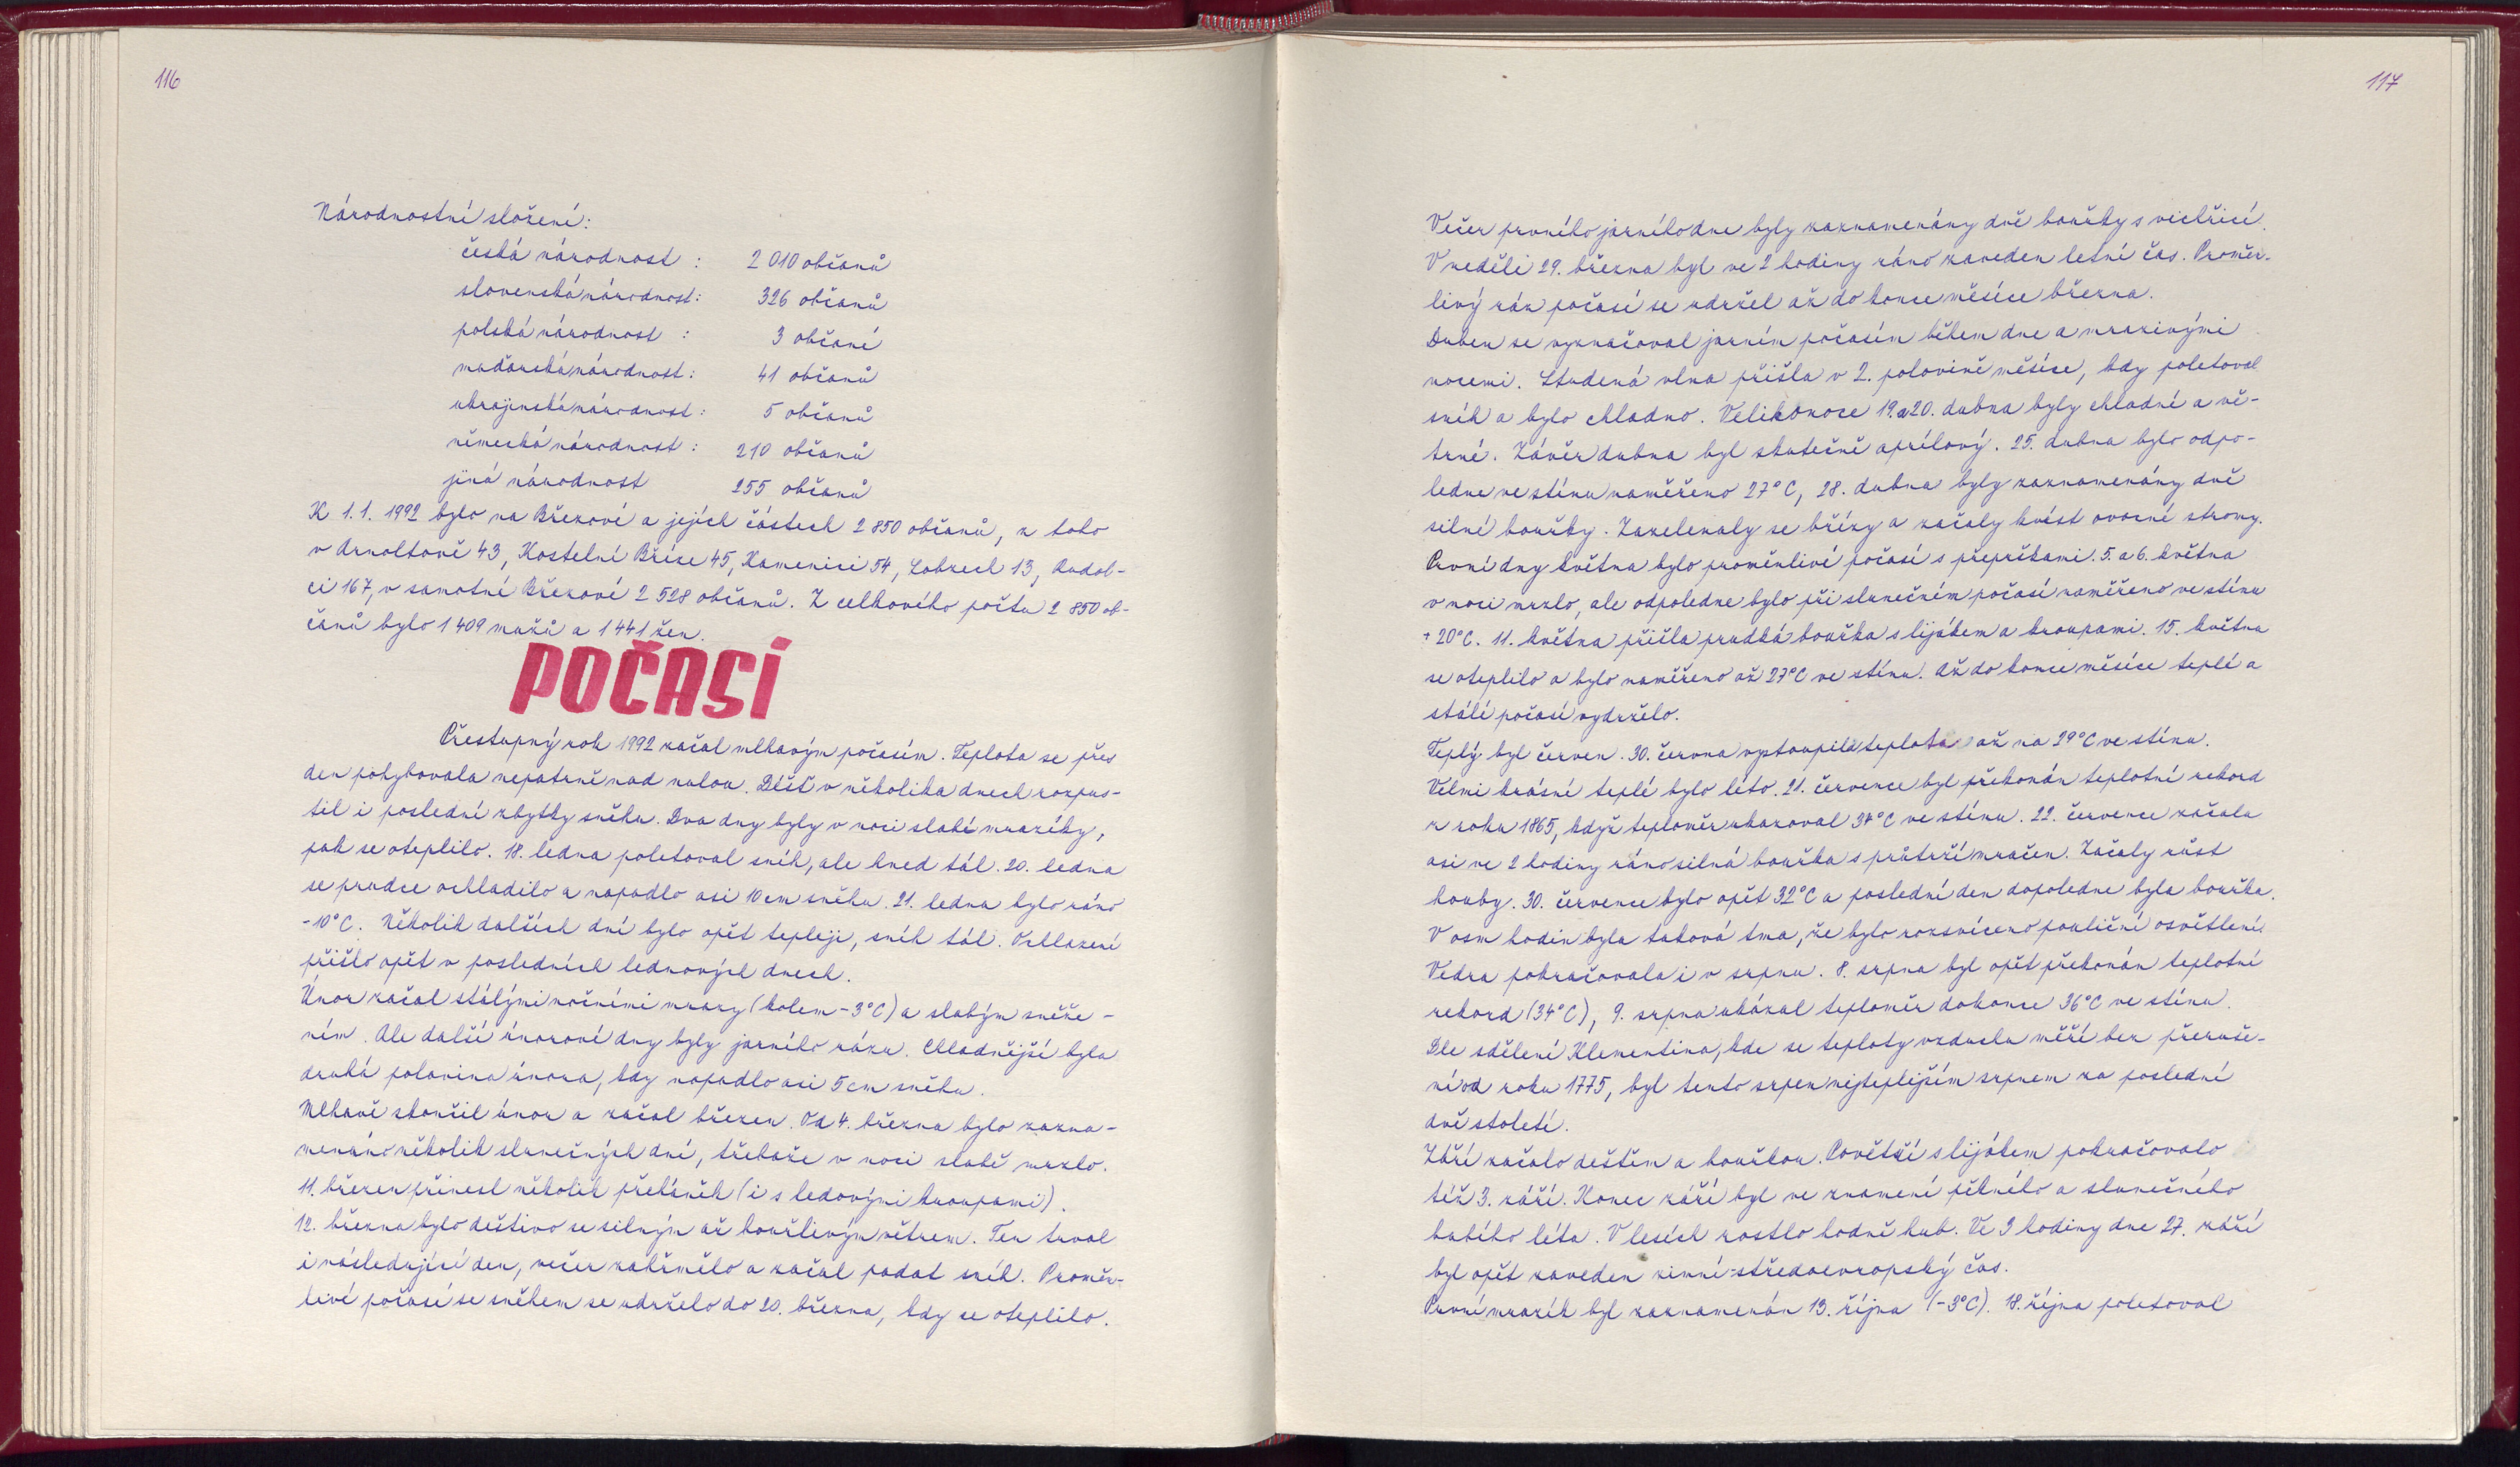 116
Národnostní složení:
česká národnost : 2 010 občanů
slovenská národnost: 326 občanů
polská národnost : 3 občané
maďarská národnost: 41 občanů
ukrajinská národnost: 5 občanů
německá národnost: 210 občanů
jiná národnost 255 občanů
K 1.1. 1992 bylo na Březové a jejích částech 2 850 občanů, z toho
v Arnoltově 43, Kostelní Bříze 45, Kamenici 54, Lobzech 13, Rudol-
ci 167, v samotné Březové 2 528 občanů. Z celkového počtu 2 850 ob-
čanů bylo 1 409 mužů a 1 441 žen.
POČASÍ
Přestupný rok 1992 začal mlhavým počasím. Teplota se přes
den pohybovala nepatrně nad nulou. Déšť v několika dnech rozpus-
til i poslední zbytky sněhu. Dva dny byly v noci slabé mrazíky,
pak se oteplilo. 18. ledna poletoval sníh, ale hned tál. 20. ledna
se prudce ochladilo a napadlo asi 10 cm sněhu. 21. ledna bylo ráno
-10°C. Několik dalších dní bylo opět tepleji, sníh tál. Ochlazení
přišlo opět v posledních lednových dnech.
Únor začal stálými nočními mrazy (kolem -3°C) a slabým sněže-
ním. Ale další únorové dny byly jarního rázu. Chladnější byla
druhá polovina února, kdy napadlo asi 5 cm sněhu.
Mlhavě skončil únor a začal březen. Od 4. března bylo zazna-
menáno několik slunečných dní, třebaže v noci slabě mrzlo.
11. březen přinesl několik přeháněk (i s ledovými kroupami).
12. března bylo deštivo se silným až bouřlivým větrem. Ten trval
i následující den, večer zahřmělo a začal padat sníh. Proměn-
livé počasí se sněhem se udrželo do 20. března, kdy se oteplilo.
117
Večer prvního jarního dne byly zaznamenány dvě bouřky s vichřicí.
V neděli 29. března byl ve 2 hodiny ráno zaveden letní čas. Proměn-
livý ráz počasí se udržel až do konce měsíce března.
Duben se vyznačoval jarním počasím během dne a mrazivými
nocemi. Studená vlna přišla v 2. polovině měsíce, kdy poletoval
sníh a bylo chladno. Velikonoce 19. a 20. dubna byly chladné a vě-
trné. Závěr dubna byl skutečně aprílový. 25. dubna bylo odpo-
ledne ve stínu naměřeno 27°C, 28. dubna byly zaznamenány dvě
silné bouřky. Zazelenaly se břízy a začaly kvést ovocné stromy.
První dny května bylo proměnlivé počasí s přeprškami. 5. a 6. května
v noci mrzlo, ale odpoledne bylo při slunečném počasí naměřeno ve stínu
+20°C. 11. května přišla prudká bouřka s lijákem a kroupami. 15. května
se oteplilo a bylo naměřeno až 27°C ve stínu. Až do konce měsíce teplé a
stálé počasí vydrželo.
Teplý byl červen. 30. června vystoupila teplota až na 29°C ve stínu.
Velmi krásné teplé bylo léto. 21. července byl překonán teplotní rekord
z roku 1865, když teploměr ukazoval 34°C ve stínu. 22. července začala
asi ve 2 hodiny ráno silná bouřka s průtrží mračen. Začaly růst
houby. 30. července bylo opět 32°C a poslední den dopoledne byla bouřka.
V osm hodin byla taková tma, že bylo rozsvíceno pouliční osvětlení.
Vedra pokračovala i v srpnu. 8. srpna byl opět překonán teplotní
rekord (34°C), 9. srpna ukázal teploměr dokonce 36°C ve stínu.
Dle sdělení Klementina, kde se teploty vzduchu měří bez přeruše-
ní od roku 1775, byl tento srpen nejteplejším srpnem za poslední
dvě století.
Září začalo deštěm a bouřkou. Povětří s lijákem pokračovalo
též 3. září. Konec září byl ve znamení pěkného a slunečného
babího léta. V lesích rostlo hodně hub. Ve 3 hodiny dne 27. září
byl opět zaveden zimní-středoevropský čas.
První mrazík byl zaznamenán 13. října (-3°C). 18. října poletoval